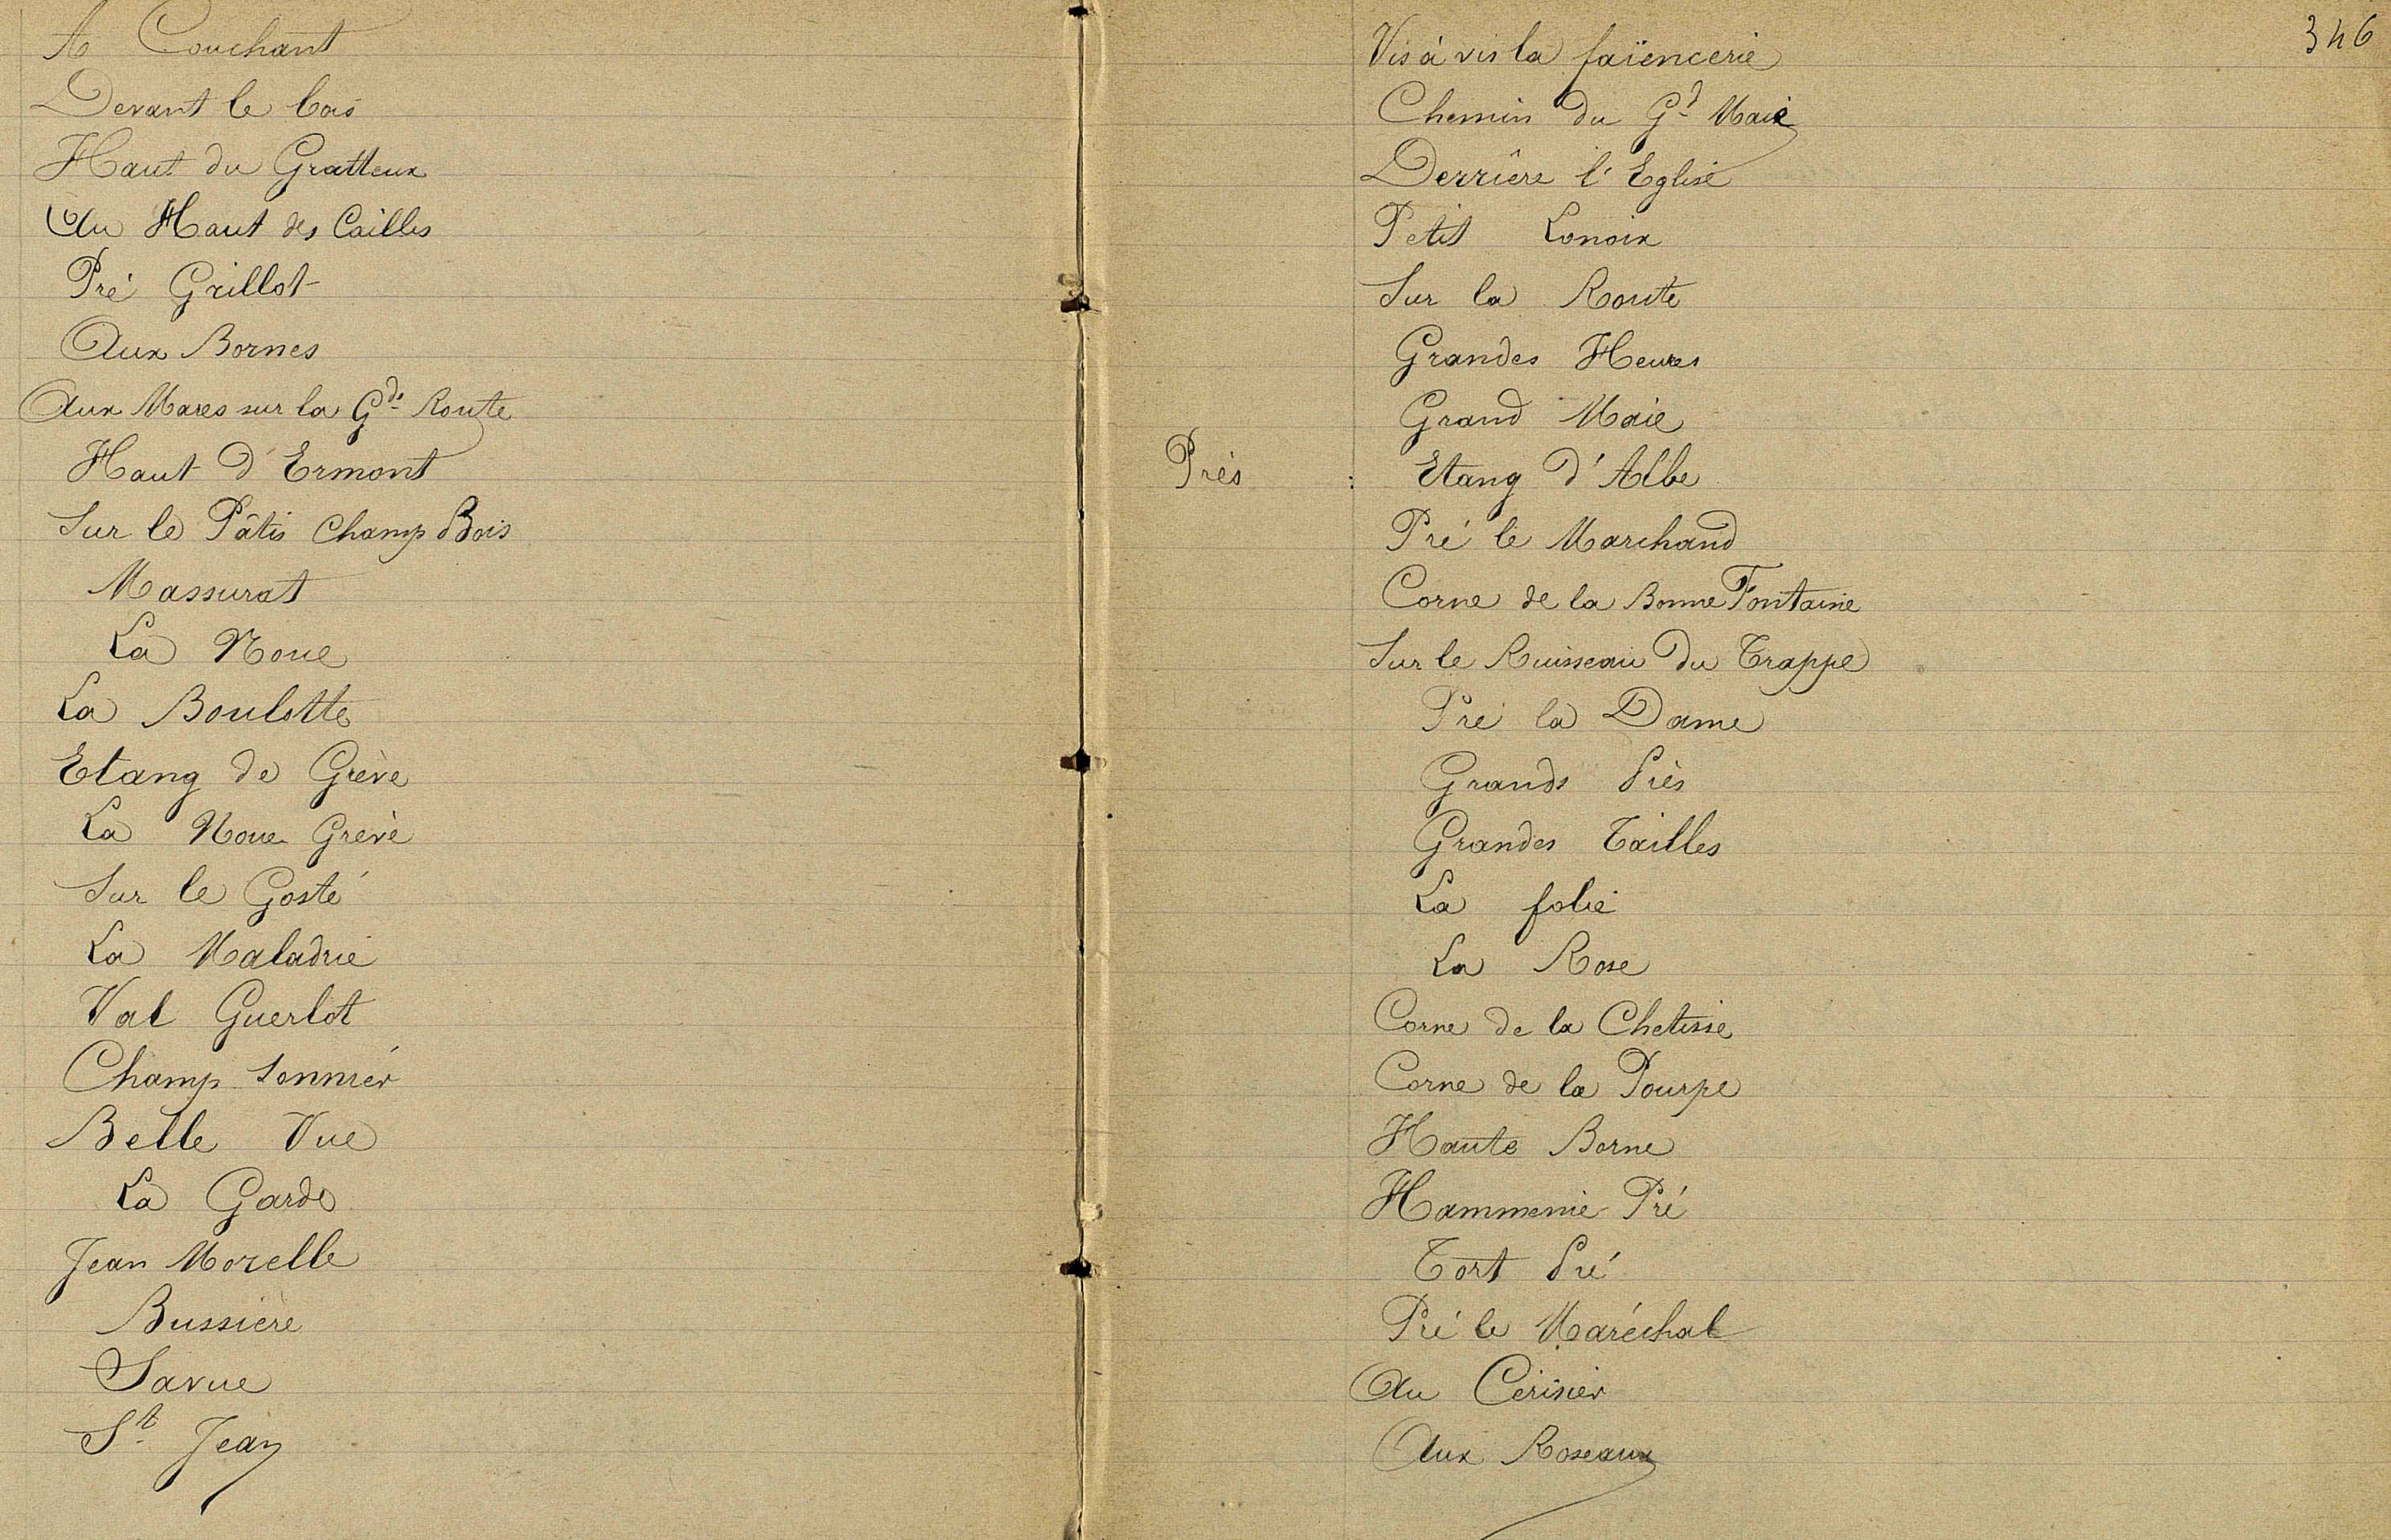 A Couchant
Devant le bois
Haut du Gratteux
Au Haut des Cailles
Pré Grillot
Aux Bornes
Aux Mares sur la Gde Route
Haut d'Ermont
Sur le Pâtis Champ Bois
Massurat
La Noue
La Boulotte
Etang de Grève
La Noue Grève
Sur le Gosté
La Maladrie
Val Guerlot
Champ Sonnier
Belle Vue
La Garde
Jean Morelle
Bussière
Savue
St Jean
346
Vis à vis la faïencerie
Chemin du Gd Maie
Derrière l'Eglise
Petit Lonoix
Sur la Route
Grandes Heures
Grand Maie
Près : Etang d'Albe
Pré le Marchand
Corne de la Bonne Fontaine
Sur le Ruisseau du Trappe
Pré la Dame
Grands Près
Grandes Tailles
La folie
La Rose
Corne de la
Corne de la Pourpe
Haute Borne
Hammenie Pré
Tort Pré
Pré le Maréchal
Au Cerisier
Aux Roseaux